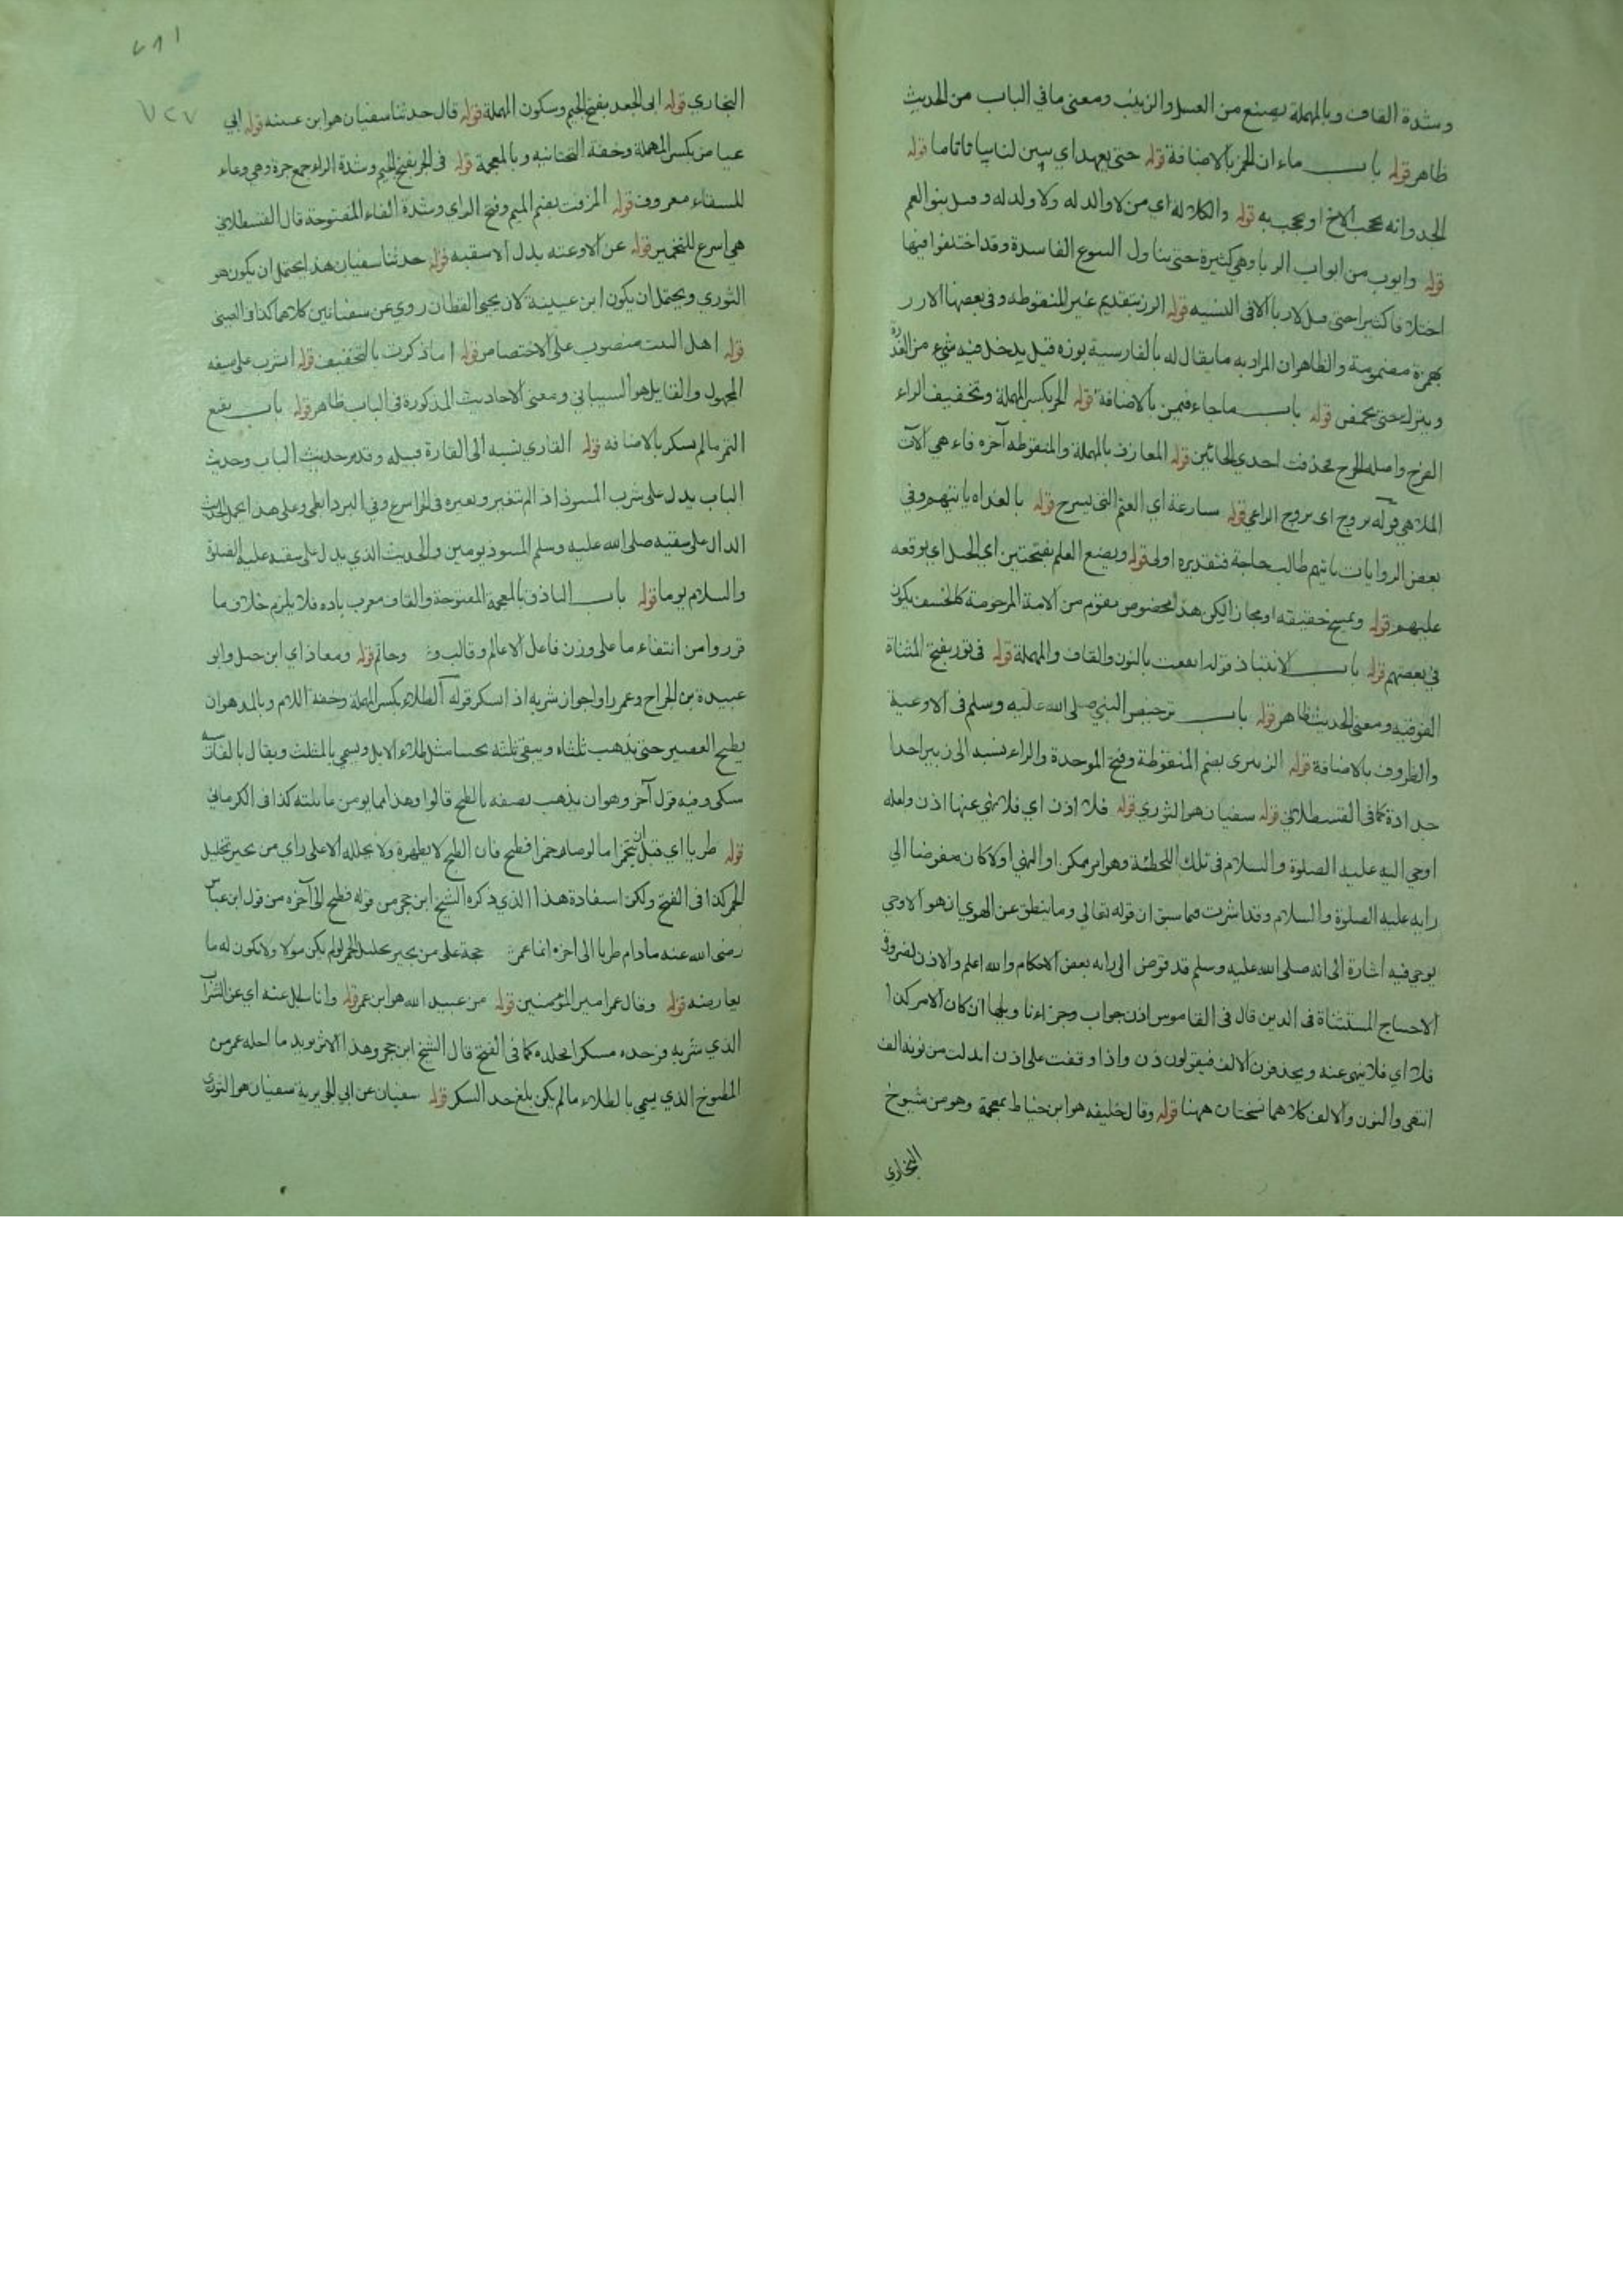 وشدة القاف وبالمهملة يصنع من العسل والزبيب ومعنى ما في الباب من الحديث
ظاهر قوله باب ماء ان الخمر بالاضافة قوله حتى يعهد اي يبين لنا بيانا تاما قوله
الجد وانه يحجب الاخ او يحجب به قوله والكلالة اي من لا والد له ولا ولد له وقيل بنو العم
قوله وابوب من ابواب الربا وهي كثيرة حتى يتناول البيوع الفاسدة وقد اختلفوا فيها
اختلافا كثيرا حتى قيل لا ربا الا في النسيه قوله الرز بتقديم غير المنقوطه وفي بعضها الارز
بهمزة مضمومة والظاهر ان المراد به ما يقال له بالفارسية بوزه قيل يدخل فيه شيء من
ويترك حتى يحمض قوله باب ما جاء فيمن بالاضافة قوله الحر بكسر المهملة وتخفيف الراء
الفرج واصله الحرح فحذفت احدى الحائين قوله المعازف بالمهملة والمنقوطه آخره فاء هي الآت
الملاهي قوله يروح اي يروح الراعي قوله سارحة اي الغنم التي تسرح قوله بالغداة ياتيهم وفي
بعض الروايات ياتيهم طالب حاجة فتقديره اولى قوله ويضع العلم بفتحتين اي الجبل اي يوقعه
عليهم قوله ويمسخ حقيقه او مجازا لكن هذا مخصوص بقوم من الامة المرحومة كالخسف يكون
في بعضهم قوله باب الانتباذ قوله انقعت بالنون والقاف والمهملة قوله في تور بفتح المثناة
الفوقيه ومعنى الحديث ظاهر قوله باب ترخيص النبي صلى الله عليه وسلم في الاوعية
والظروف بالاضافة قوله الزبيرى بضم المنقوطة وفتح الموحدة والراء نسبه الى زبير احد
اجداده كما في القسطلاني قوله سفيان هو الثوري قوله فلا اذن اي فلا نهي عنها اذن ولعله
اوحي اليه عليه الصلوة والسلام في تلك اللحظة وهو امر ممكن او النهي اولا كان مفوضا الى
رايه عليه الصلوة والسلام وقد اشرت فيما سبق ان قوله تعالي وما ينطق عن الهوي ان هو الا وحي
يوحي فيه اشارة الى انه صلى الله عليه وسلم قد فوض الى رايه بعض الاحكام والله اعلم والاذن لضرورة
الاحتياج المستثناة في الدين قال في القاموس اذن جواب وجزاء تاويلها ان كان الامر كذا
فلا اي فلا ينهى عنه ويحذفون الالف فيقولون ذن واذا وقفت على اذن ابدلت من نونه الف
انتهى والنون والالف كلاهما نسختان ههنا قوله وقال خليفه هو ابن خياط بمعجمة وهو من شيوخ
البخاري
٧٢٧
البخاري قوله ابي الجعد بفتح الجيم وسكون المهملة قوله قال حدثنا سفيان هو ابن عيينه قوله ابي
عياض بكسر المهملة وخفة التحتانيه وبالمعجمة قوله في الجر بفتح الجيم وشدة الراء جمع جرة وهي وعاء
للسقاء معروف قوله المزفت بضم الميم وفتح الزاي وشدة الفاء المفتوحة قال القسطلاني
هي اسرع للتخمير قوله عن الاوعيه بدل الاسقيه قوله حدثنا سفيان هذا يحتمل ان يكون هو
الثوري ويحتمل ان يكون ابن عيينة لان يحيى القطان روي عن سفيانين كلاهما كذا في العيني
قوله اهل البيت منصوب على الاختصاص قوله اما ذكرت بالتخفيف قوله اشرب على صيغه
المجهول والقايل هو الشيباني ومعنى الاحاديث المذكورة في الباب ظاهر قوله باب نقيع
التمر ما لم يسكر بالاضافه قوله القاري نسبه الى القارة قبيله وقد مر حديث الباب وحديث
الباب يدل على شرب المنبوذ اذا لم يتغير وتغيره في الحر اسرع وفي البرد ابطي وعلى هذا يحمل الحديث
الدال على سقيه صلى الله عليه وسلم المنبوذ يومين والحديث الذي يدل على سقيه عليه الصلوة
والسلام يوما قوله باب الباذق بالمعجمة المفتوحة والقاف معرب باده فلا يلزم خلاف ما
قرروا من انتفاء ما على وزن فاعل الا عالم وقالب و وحاتم قوله ومعاذ اي ابن جبل وابو
عبيدة بن الجراح وعمر راوا جواز شربه اذا اسكر قوله الطلاء بكسر المهملة وخفة اللام وبالمد هو ان
يطبخ العصير حتى يذهب ثلثاه ويبقى ثلثه تخينا مثل طلاء الابل ويسمي بالمثلث ويقال بالفارسيه
سكى وفيه قول آخر وهو ان يذهب نصفه بالطبخ قالوا وهذا مما يومن غائلته كذا في الكرماني
قوله طريا اي قبل ان يتخمر اما لو صار خمرا فطبخ فان الطبخ لا يطهره ولا يحلله الا على راي من يجيز تخليل
الخمر كذا في الفتح ولكن استفادة هذا الذي ذكره الشيخ ابن حجر من قوله فطبخ الى آخره من قول ابن عباس
رضى الله عنه ما دام طريا الى اخره انما حجة على من يجيز تخليل الخمر لو لم يكن موولا ولا يكون له ما
يعارضه قوله وقال عمر امير المؤمنين قوله من عبيد الله هو ابن عمر قوله وانا سايل عنه اي عن الشراب
الذي شربه فوجده مسكرا فجلده كما في الفتح قال الشيخ ابن حجر وهذا الاثر يويد ما احله عمر من
المطبوخ الذي يسمي بالطلاء ما لم يكن بلغ حد السكر قوله سفيان عن ابي الجويرية سفيان هو الثوري